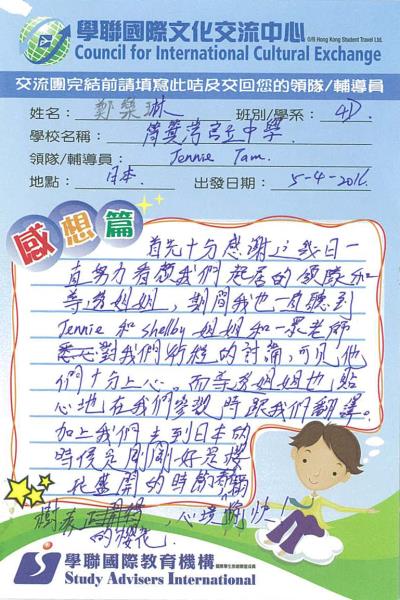 學聯國際文化交流中心
O/B Hong Kong Student Travel Ltd.
Council for International Cultural Exchange
交流團完結前請填寫此咭及交回您的領隊/輔導員
姓名：鄭樂琳 班別/學系：4D
學校名稱：官立中學
領隊/輔導員：Jennie Tam.
地點：日本 出發日期：5-4-2016
感想篇
首先十分感謝这幾日一
直努力看顧我們起居的領隊和
導遊姐姐，期間我也一直聽到
Jennie 和 Shelby 姐姐和一眾老師
對我們行程的討論，可見他
們十分上心。而導遊姐姐也貼
心地在我們參觀時跟我們翻譯。
加上我們去到日本的
時候是剛剛好是櫻
花盛開的時
的櫻花，心境愉快！
學聯國際教育機構
Study Advisers International